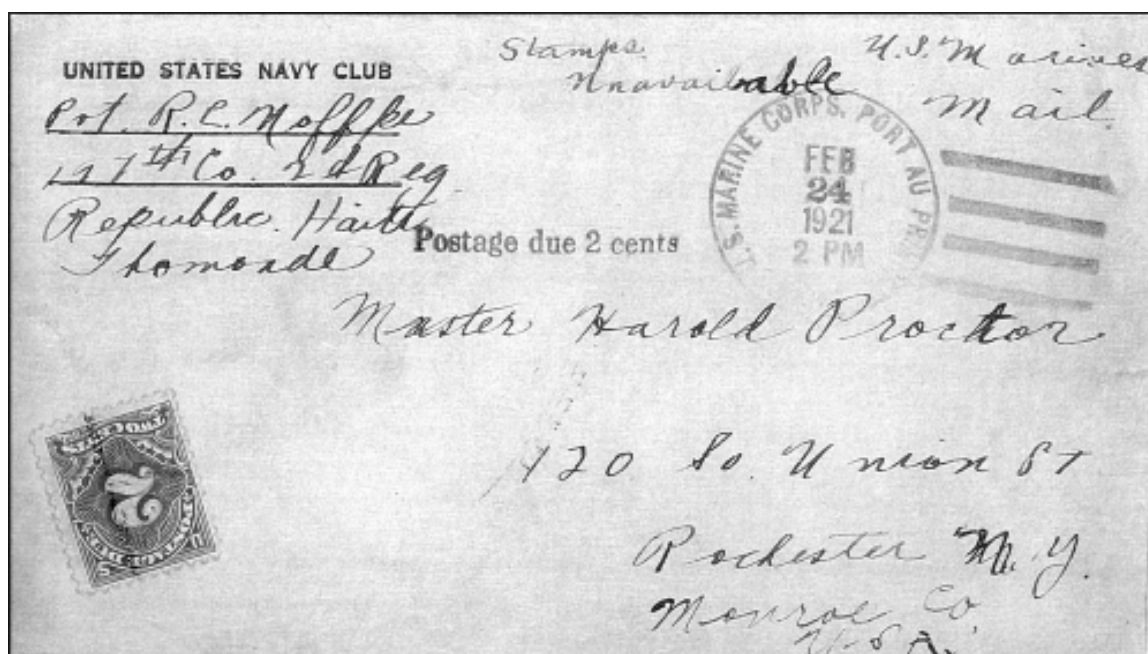 UNITED STATES NAVY CLUB
Pvt. R.C.
Co. 2d Reg.
Republic. Haiti
Thomonde
Stamps
Unavailable
U.S. Marines
Mail.
U.S. MARINE CORPS. PORT AU PRIN
FEB
24
1921
2 PM
Postage due 2 cents
Master Harold Proctor
120 So. Union St
Rochester N.Y.
Monroe Co.
U.S.A.
TWO CENTS
2
POSTAGE DUE